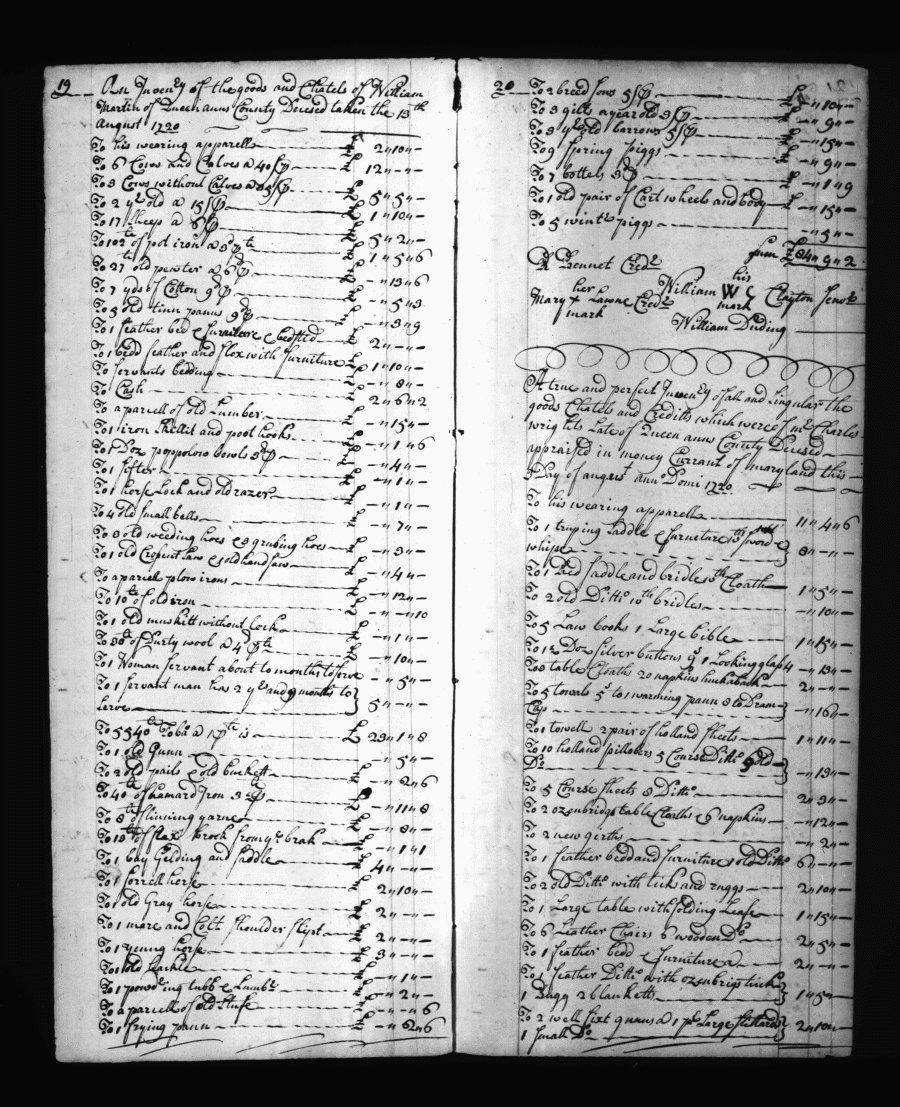 19
An Inven:ry of the goods and Chatels of William
Martin of Queen anns County Decesed taken the 13th
August 1720
To his wearing apparell £ 2"10"-
To 6 Cows and Calves a 40/p £ 12"-"-
To 3 Cows without Calves a 35/p £ 5"5"-
To 2 yr old a 15/p £ 1"10"-
To 17 sheep a 6/p £ 5"2"-
To 102 lb of pot iron a 3d p lb £ 1"5"6
To 27 lb old pewter a 6d p £ -"13"6
To 7 yds of Cotton 9d p £ -"5"3
To 5 old tinn panns 9d p £ -"3"9
To 1 feather bed & furniture & bedsted £ 2"-"-
To 1 bedd feather and flox with furniture £ 1"10"-
To servants bedding £ -"8"-
To Cash £ 2"6"2
To a parcell of old Lumber £ -"15"-
To 1 iron Skillit and poot hooks £ -"1"6
To 1 Doz poppoloro bowls 3d p £ -"4"-
To 1 sifter £ -"1"-
To 1 horse Lock and old razer £ -"1"-
To 4 old small bells £ -"7"-
To 3 old weeding hoes & 3 grubing hoes £ -"3"-
To 1 old Croscut saw & 1 old hand saw £ -"4"-
To a parcell plow irons £ -"12"-
To 10 lb of old iron £ -"-"10
To 1 old muskitt without lock £ -"1"-
To 30 lb of Durty wool a 4d p lb £ -"10"-
To 1 Woman servant about 10 months to serve £ -"5"-
To 1 servant man has 2 yr and 9 months to
serve } 5"-"-
To 5540 lb Toba a 1d p lb is £ 23"1"8
To 1 old Gunn £ -"5"-
To 2 old pails & old buckett £ -"2"6
To 40 lb of hamard Iron £ -"11"8
To 8 lb of linning yarne £ -"8"-
To 13 lb of flax brock from ye brak £ -"1"1
To 1 bay Gelding and saddle £ 4"-"-
To 1 sorrell horse £ 2"10"-
To 1 old Gray horse £ 2"-"-
To 1 mare and Colt shoulder slipt £ 2"-"-
To 1 young horse £ 3"-"-
To 1 old hackle £ -"1"-
To 1 powdring tubb & Lumbr £ -"2"-
To a parcell of old stufe £ -"-"6
To 1 frying pann £ -"2"6
20
To 2 breed sows 5/p £ -"10"-
To 3 gilts a year old 3/p £ -"9"-
To 3 yr old barrows 5/p £ -"15"-
To 9 spring piggs £ -"9"-
To 7 bottels 3d p £ -"1"9
To 1 old pair of Cart wheels and body £ -"15"-
To 5 wintr piggs -"5"-
sum £ 84"9"2
R Bennet Credr
her Mary X Lawne Credr mark
William his W C mark Clayton Senr
William Duding
A true and perfect Inven:ry of all and singular the
goods Chatels and Creditts which were of mr Charles
wrights Late of Queen anns County Decesed
appraised in money Currant of maryland this
Day of august ann Domi 1720
To his wearing apparell 11"4"6
To 1 truping saddle & furneture wth sword &
whipe } 3"-"-
To 1 Red saddle and bridle wth Cloath 1"5"-
To 2 old Ditto wth bridles -"10"-
To 5 Law books 1 Large bible 1"15"-
To 1½ Doz silver buttons 1 Looking glass -"13"-
To 3 table Cloaths 20 napkins huckaback 2"-"-
To 5 towals 5s to 1 warming pann 3 to Dram
Cup } -"16"-
To 1 towell 2 pair of holland sheets 1"11"-
To 10 holland pillobers 5 Course Ditto 9 old
Do } -"13"-
To 5 Course sheets 8 Ditto 2"3"-
To 2 ozenbrigs table Cloaths & 6 napkins -"12"-
To 2 new girths -"2"-
To 1 feather bedd and furniture 1 old Ditto 6"-"-
To 2 old Ditto with tick and ruggs 2"10"-
To 1 Large table with folding Leafe 1"15"-
To 6 Leather Chairs 6 wooden Do 2"5"-
To 1 feather bedd & furniture 2"-"-
To 1 feather Ditto with ozenbrigs tick
1 Rugg 2 blanketts } 1"5"-
To 2 well fixt gunns a 1 pr Large stiliards
1 small Do } 2"10"-